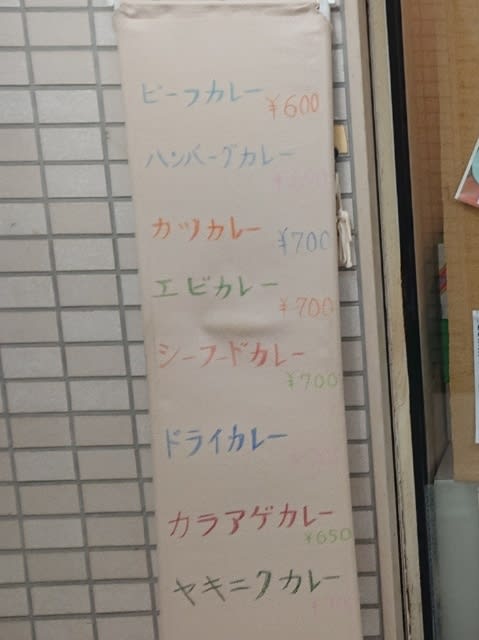 ビーフカレー
¥600
ハンバーグカレー
カツカレー
¥700
エビカレー
¥700
シーフードカレー
¥700
ドライカレー
カラアゲカレー
¥650
ヤキニクカレー